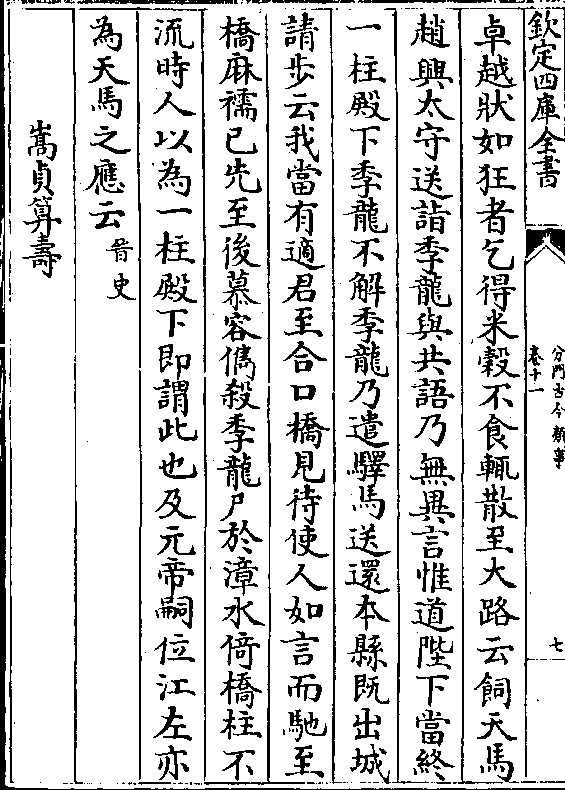 欽定四庫全書
分門古今類事
卷十一
七
卓越狀如狂者乞得米穀不食輒散至大路云飼天馬
趙興太守送詣季龍與共語乃無異言惟道陛下當終
一柱殿下季龍不解季龍乃遣驛馬送還本縣既出城
請步云我當有適君至合口橋見待使人如言而馳至
橋麻襦已先至後慕容儁殺季龍尸於漳水倚橋柱不
流時人以為一柱殿下即謂此也及元帝嗣位江左亦
為天馬之應云晉史
嵩貞算壽